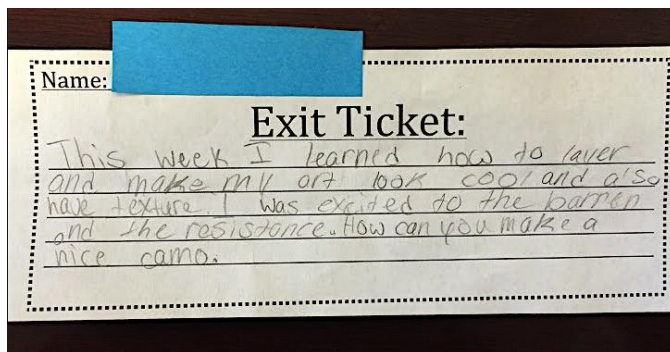 Name:
Exit Ticket:
This week I learned how to layer
and make my art look cool and also
have texture I was excited to the barren
and the resistance. How can you make a
nice camo.